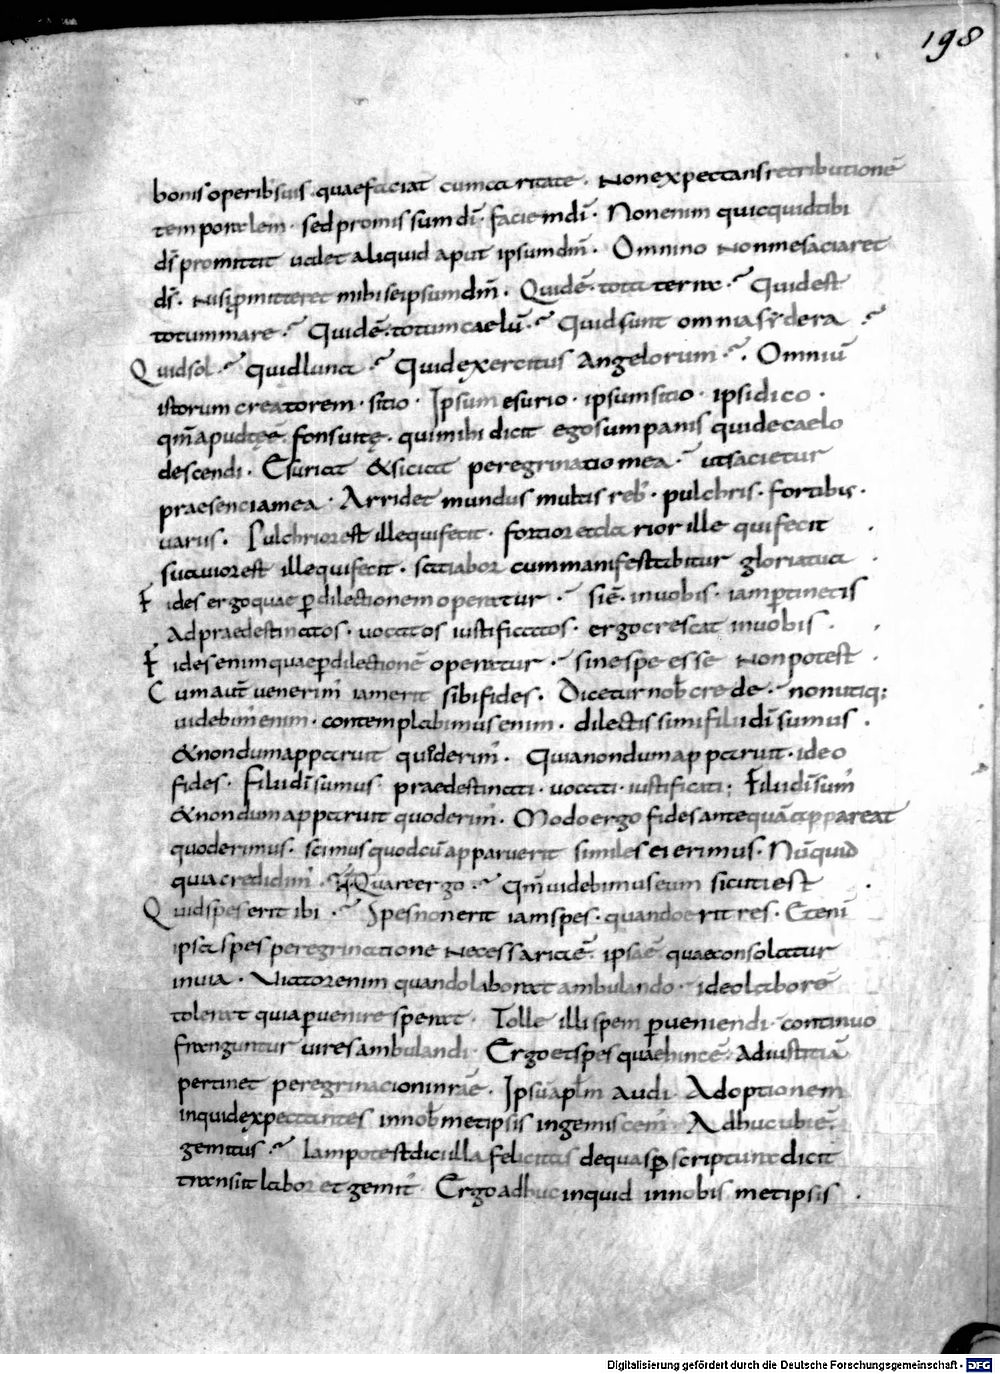 198
bonis operib; suis quae faciat cum caritate · Non expectans retributionē
temporalem · sed promissum dī · faciem dī · Non enim quicquid tibi
ds̄ promittit ualet aliquid aput ipsum dm̄ · Omnino non me saciaret
ds̄ · nisi ꝓmitteret mihi seipsum dm̄ · Quid ē tota terra · Quid est
totum mare · Quid ē totum caelū · Quid sunt omnia sydera
Quid sol · quid luna · Quid exercitus angelorum · Omniū
istorum creatorem · sitio · Ipsum esurio · ipsum sitio · ipsi dico ·
qm̄ apud te ē fons uitę · qui mihi dicit ego sum panis qui de caelo
descendi · Esuriat & siciat peregrinatio mea · ut sacietur
praesencia mea · Arridet mundus multis reb; · pulchris · fortibus ·
uariis · Pulchrior est ille qui fecit · fortior et clarior ille qui fecit
suauior est ille qui fecit · satiabor cum manifestabitur gloria tua ·
Fides ergo quae ꝑ dilectionem operatur · si ē in uobis · iam ꝑtinetis
ad praedestinatos · uocatos iustificatos · ergo crescat in uobis ·
Fides enim quae ꝑ dilectionē operatur · sine spe esse non potest ·
Cum aut̄ uenerim' iam erit sibi fides · Dicetur nob̄ crede · non utiq;
uidebim' enim · contemplabimus enim · dilectissimi filii dī sumus ·
& nondum apparuit quid erim' · Quia nondum apparuit · ideo
fides · Filii dī sumus praedestinati · uocati · iustificati; Filii dī sum'
& nondum apparuit quod erim' · Modo ergo fides antequā appareat
quod erimus · scimus quod cū apparuerit similes ei erimus · Nūquid
quia credidim' · Quare ergo · qm̄ uidebimus eum sicuti est ·
Quid spes erit ibi · Spes non erit iam spes · quando erit res · Etenī
ipsa spes peregrinatione necessaria ē ipsa ē quae consolatur
in uia · Viator enim quando laborat ambulando · ideo laborē
tolerat quia ꝑuenire sperat · Tolle illi spem ꝑueniendi · continuo
franguntur uires ambulandi · Ergo et spes quae hinc ē ad iustitiā
pertinet peregrinacionin rāe · Ipsū apl̄m audi · Adoptionem
inquid expectantes in nob̄ metipsis ingemiscem' · Adhuc ubi ē
gemitus · Iam potest dici illa felicitas de qua sp̄ scriptura dicit
transiit labor et gemit' Ergo adhuc inquid in nobis metipsis ·
Digitalisierung gefördert durch die Deutsche Forschungsgemeinschaft · DFG